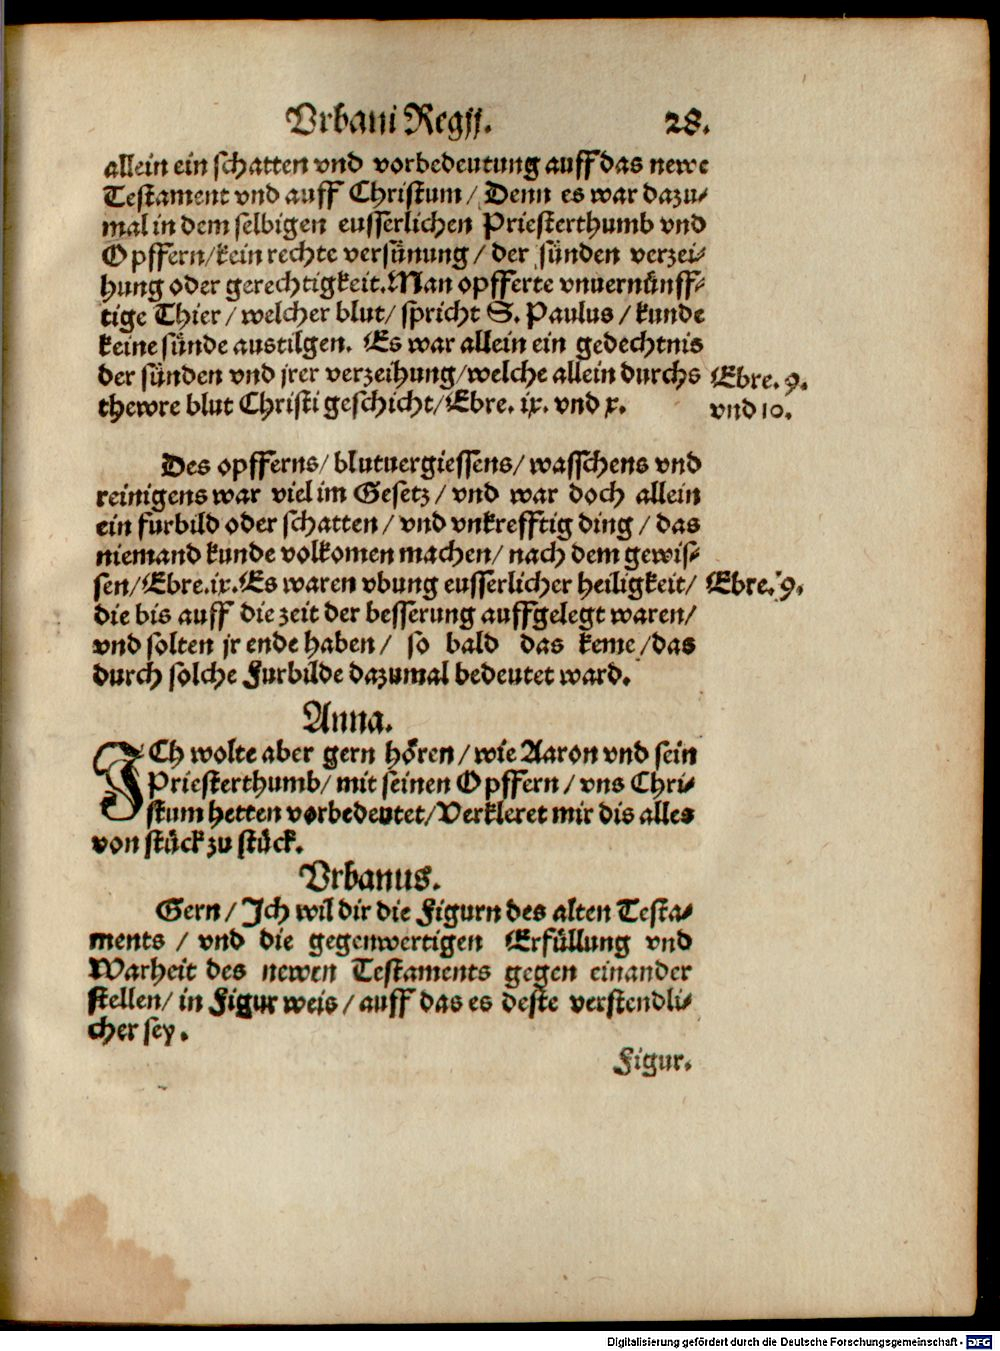 Vrbani Regij. 28.
allein ein schatten vnd vorbedeutung auff das newe
Testament vnd auff Christum / Denn es war dazu-
mal in dem selbigen eusserlichen Priesterthumb vnd
Opffern / kein rechte versünung / der sünden verzei-
hung oder gerechtigkeit. Man opfferte vnuernünff-
tige Thier / welcher blut / spricht S. Paulus / kunde
keine sünde austilgen. Es war allein ein gedechtnis
der sünden vnd jrer verzeihung / welche allein durchs
Ebre. 9.
thewre blut Christi geschicht / Ebre. ix. vnd x.
vnd 10.
Des opfferns / blutuergiessens / wasschens vnd
reinigens war viel im Gesetz / vnd war doch allein
ein furbild oder schatten / vnd vnkrefftig ding / das
niemand kunde volkomen machen / nach dem gewis-
sen / Ebre. ix. Es waren vbung eusserlicher heiligkeit /
Ebre. 9.
die bis auff die zeit der besserung auffgelegt waren /
vnd solten jr ende haben / so bald das keme / das
durch solche Furbilde dazumal bedeutet ward.
Anna.
JCh wolte aber gern hören / wie Aaron vnd sein
Priesterthumb / mit seinen Opffern / vns Chri-
stum hetten vorbedeutet / Verkleret mir dis alles
von stück zu stück.
Vrbanus.
Gern / Jch wil dir die Figurn des alten Testa-
ments / vnd die gegenwertigen Erfüllung vnd
Warheit des newen Testaments gegen einander
stellen / in Figur weis / auff das es deste verstendli-
cher sey.
Figur.
Digitalisierung gefördert durch die Deutsche Forschungsgemeinschaft - DFG